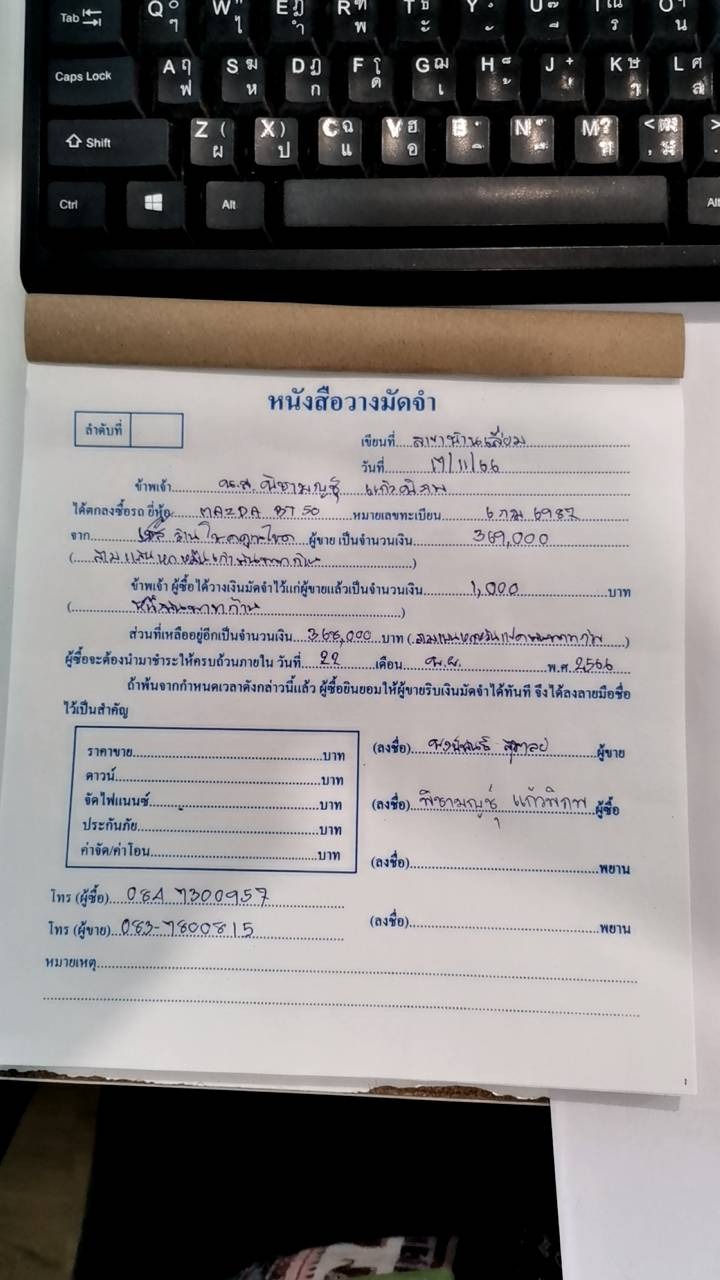 Tab Q W E R T Y U I O
Caps Lock A S D F G H J K L
Shift Z X C V B N M
Ctrl Alt Alt
หนังสือวางมัดจำ
ลำดับที่
เขียนที่
วันที่ 17/11/66
ข้าพเจ้า น.ส. พิชามญชุ์ แก้วพิภพ
ได้ตกลงซื้อรถ ยี่ห้อ MAZDA BT 50 หมายเลขทะเบียน 6 กม 6987
จาก ผู้ขาย เป็นจำนวนเงิน 369,000
(สามแสนหกหมื่นเก้าพันบาทถ้วน)
ข้าพเจ้า ผู้ซื้อได้วางเงินมัดจำไว้แก่ผู้ขายแล้วเป็นจำนวนเงิน 1,000 บาท
(หนึ่งพันบาทถ้วน)
ส่วนที่เหลืออยู่อีกเป็นจำนวนเงิน 368,000 บาท (สามแสนหกหมื่นแปดพันบาทถ้วน)
ผู้ซื้อจะต้องนำมาชำระให้ครบถ้วนภายใน วันที่ 22 เดือน พ.ย. พ.ศ. 2566
ถ้าพ้นจากกำหนดเวลาดังกล่าวนี้แล้ว ผู้ซื้อยินยอมให้ผู้ขายริบเงินมัดจำได้ทันที จึงได้ลงลายมือชื่อ
ไว้เป็นสำคัญ
ราคาขาย บาท
ดาวน์ บาท
จัดไฟแนนซ์ บาท
ประกันภัย บาท
ค่าจัด/ค่าโอน บาท
(ลงชื่อ) ผู้ขาย
(ลงชื่อ) พิชามญชุ์ แก้วพิภพ ผู้ซื้อ
(ลงชื่อ) พยาน
(ลงชื่อ) พยาน
โทร (ผู้ซื้อ) 084 7300957
โทร (ผู้ขาย) 083-7800815
หมายเหตุ